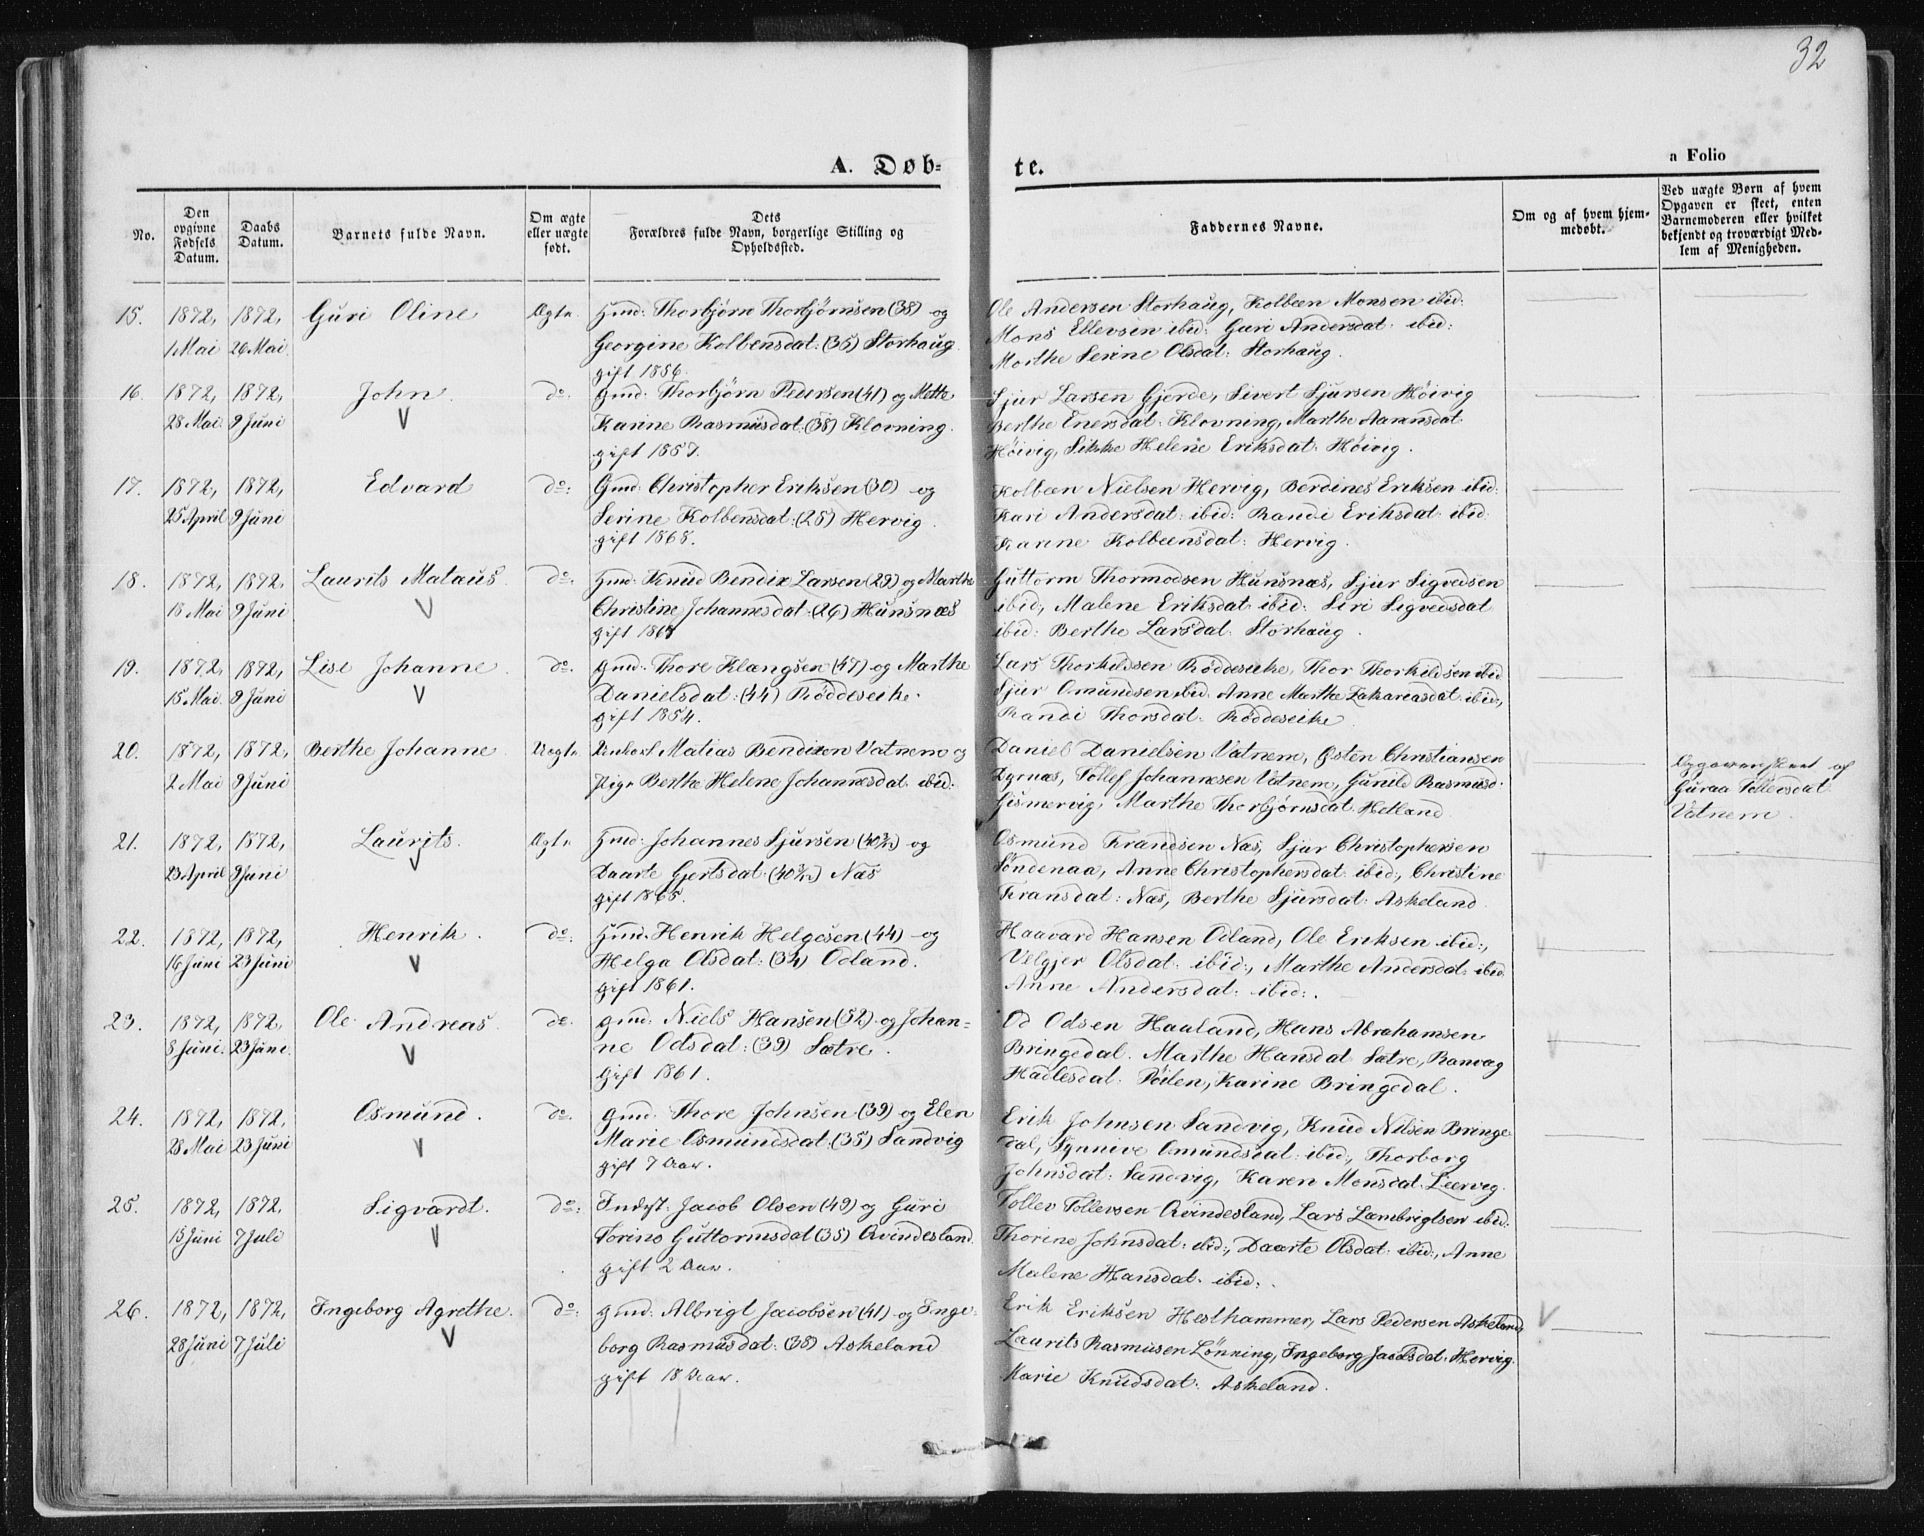 32
A. Døb-
te.
a Folio
No.
Den opgivne Fødsels Datum.
Daabs Datum.
Barnets fulde Navn.
Om ægte eller uægte født.
Dets Forældres fulde Navn, borgerlige Stilling og Opholdssted.
Faddernes Navne.
Om og af hvem hjemmedøbt.
Ved uægte Børn af hvem Opgaven er skeet, enten Barnemoderen eller hvilket bekjendt og troværdigt Medlem af Menigheden.
15. 1872, 1872, Guri Oline Ægte. Gmd: Thorbjørn Thorbjørnsen (38) og
1 Mai 26 Mai Georgine Kolbensdat: (36) Storhaug.
gift 1856.
Ole Andersen Storhaug, Kolbeen Monsen ibid:
Mons Ellevsen ibid: Guri Andersdat: ibid:
Marthe Serine Olsdat: Storhaug.
16. 1872, 1872, John do. Gmd: Thorbjørn Pedersen (41) og Mette
28 Mai. 9 Juni Karine Rasmusdat: (38) Klovning.
gift 1857.
Sjur Larsen Gjerde, Sivert Sjursen Høivig
Berthe Enersdat: Klovning, Marthe Aamunsdat
Høivig, Sikke Helene Eriksdat: Høivig.
17. 1872, 1872, Edvard do: Gmd: Christopher Eriksen (30) og
25 April 9 Juni Serine Kolbensdat: (25) Hervig.
gift 1868.
Kolbeen Nielsen Hervig, Berdines Eriksen ibid:
Kari Andersdat: ibid: Randi Eriksdat: ibid:
Karine Kolbeensdat: Hervig.
18. 1872, 1872, Laurits Mataus do: Gmd: Knud Bendix Larsen (29) og Marthe
18 Mai 9 Juni Christine Johannesdat: (26) Hunsnæs
gift 1868
Guttorm Thormodsen Hunsnæs, Sjur Sigvedsen
ibid, Malene Eriksdat: ibid: Siri Sigvedsdat
ibid: Berthe Larsdat: Storhaug.
19. 1872, 1872, Lise Johanne do. Gmd: Thore Klangsen (47) og Marthe
15 Mai. 9 Juni Danielsdat: (44) Røddeseike.
gift 1854.
Lars Thorkildsen Røddeseike, Thor Thorkildsen ibid
Sjur Omundsen ibid. Anne Marthe Zakariasdat: ibid:,
Randi Thorsdat: Røddeseike
20. 1872, 1872, Berthe Johanne Uægte Unkarl Matias Bendixen Vatnem og
2 Mai 9 Juni Pige Berthe Helene Johannesdat ibid:
Daniel Danielsen Vatnem, Østen Christiansen
Dyrnæs, Tollef Johannesen Vatnem, Gunild Rasmusd.
Gismervig, Marthe Thorbjørnsdat Hetland.
Opgaven skeet af
Guraa Tollevsdat
Vatnem.
21. 1872, 1872, Laurits. Ægte. Gmd: Johannes Sjursen og
23 April 9 Juni Daarte Gjertsdat: Næs
gift 1865.
Osmund Frandsen Næs, Sjur Christophersen
Søndenaa, Anne Christophersdat: ibid:, Christine
Fransdat: Næs, Berthe Sjursdat: Askeland.
22. 1872, 1872, Henrik. do: Gmd. Henrik Helgesen (44) og
16 Juni 23 Juni Helga Olsdat: (34) Odland.
gift 1861.
Haavard Hansen Odland, Ole Eriksen ibid:,
Velgjer Olsdat: ibid:, Marthe Andersdat: ibid
Anne Andersdat: ibid:.
23. 1872, 1872, Ole Andreas. do. Gmd: Niels Hansen (52) og Johan-
8 Juni. 23 Juni. ne Odsdat: (39) Sætre.
Gift 1861.
Od Odsen Haaland, Hans Abrahamsen
Bringedal. Marthe Hansdat Sætre, Ranvæg
Hadlesdat: Pøilen, Karine Bringedal.
24. 1872, 1872, Osmund. do. Gmd: Thore Johnsen (39) og Elen
28 Mai 23 Juni Marie Osmundsdat: (35) Sandvig
gift 7 Aar.
Erik Johnsen Sandvig, Knud Nilsen Bringe
dal, Synnive Omundsdat: ibid:, Thorborg
Johnsdat: Sandvig, Karen Monsdat. Leervig.
25. 1872, 1872, Sigvardt. do: Indst: Jacob Olsen (49) og Guri
15 Juni 7 Juli Torine Guttormsdat (35) Qvindesland.
gift 2 Aar.
Tollev Tollevsen Qvindesland, Lars Lambrigtsen ibid:
Thorine Johnsdat: ibid:, Daarte Olsdat: ibid:, Anne
Malene Hansdat: ibid:.
26. 1872, 1872, Ingeborg Agrethe. do: Gmd: Albrigt Jacobsen (41) og Inge-
28 Juni 7 Juli borg Rasmusdat: (38) Askeland
gift 18 Aar.
Erik Eriksen Hesthammer, Lars Pedersen Askeland,
Laurits Rasmusen Lønning, Ingeborg Jacobsdat: Hervig.
Marie Knudsdat: Askeland.